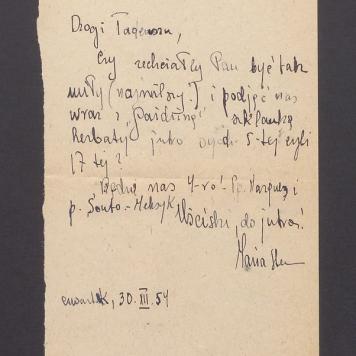 Drogi Tadeuszu,
Czy zechciałby Pan być tak
miły (najmilszy!) i podjąć nas
wraz z „Gaidzią” szklanką
herbaty jutro o godz. 5-tej czyli
17 tej?
Będzie nas 4-ro! Pp. Vazquez i
p. Souto - Meksyk Uściski, do jutra!
Maria
czwartek, 30. III. 54